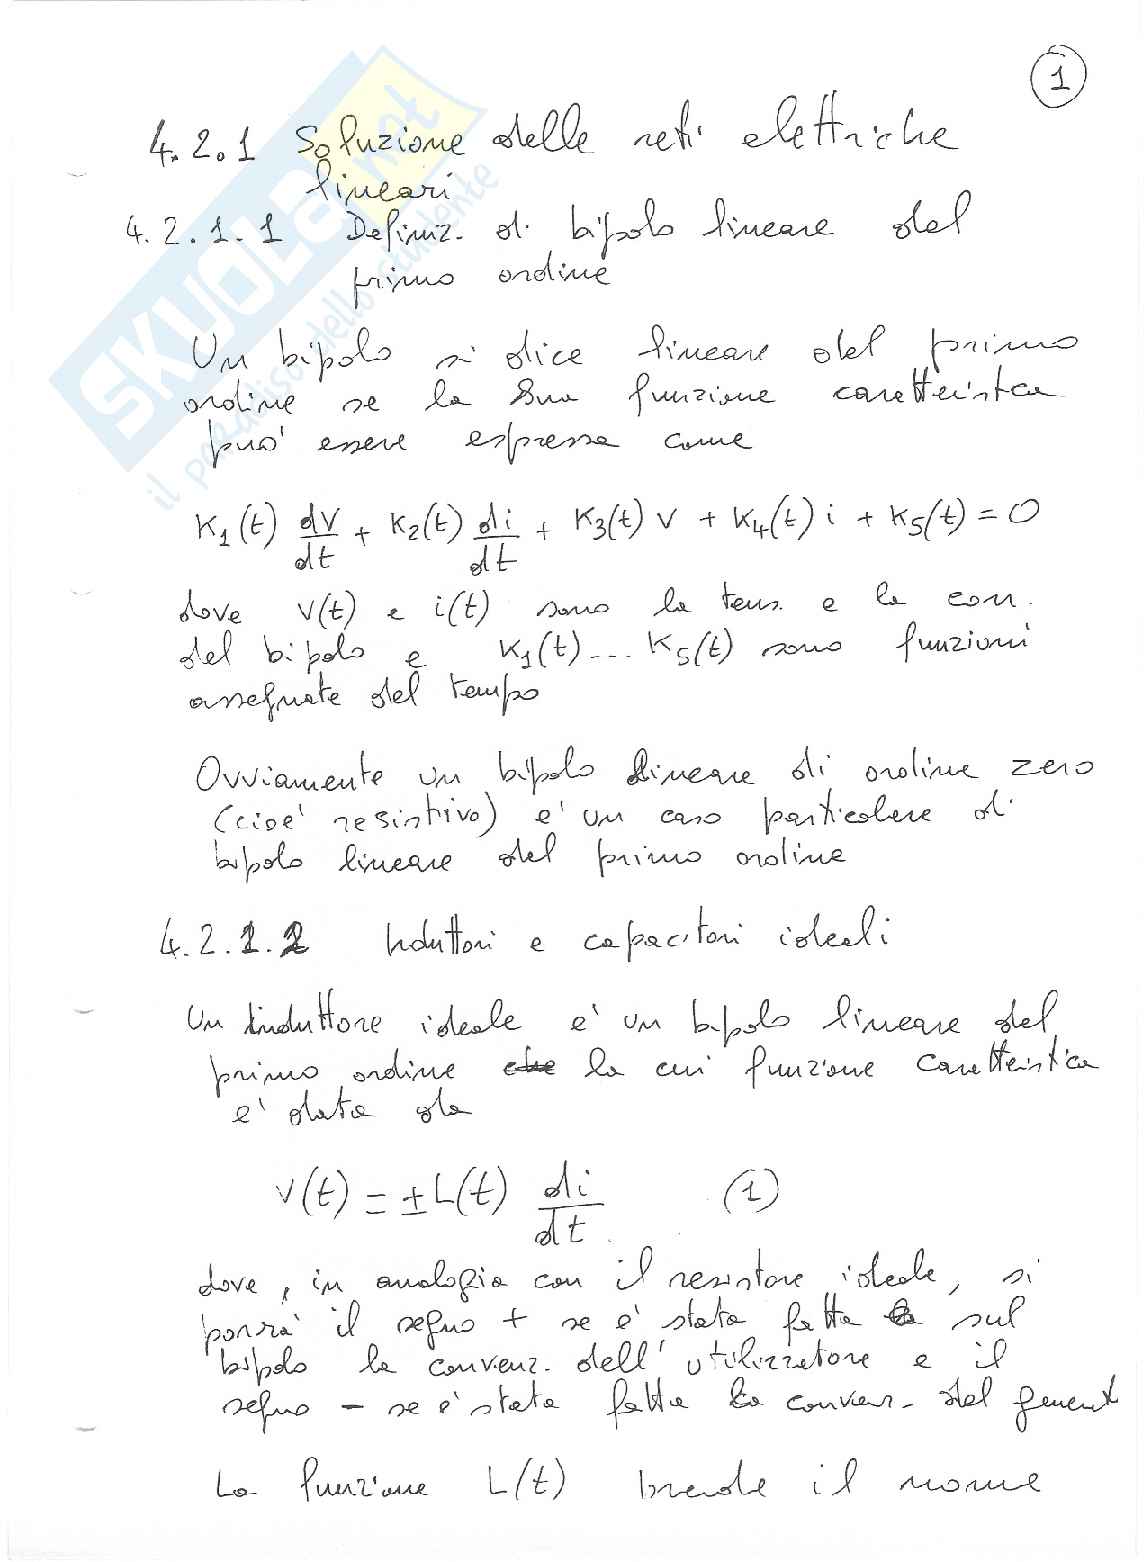 1
4.2.1 Soluzione delle reti elettriche
lineari
4.2.1.1 Definiz. di bipolo lineare del
primo ordine
Un bipolo si dice lineare del primo
ordine se la sua funzione caratteristca
puo' essere espressa come
K1(t) dv/dt + K2(t) di/dt + K3(t) v + K4(t) i + K5(t) = 0
dove v(t) e i(t) sono la tens. e la corr.
del bipolo e K1(t)...K5(t) sono funzioni
assegnate del tempo
Ovviamente un bipolo lineare di ordine zero
(cioe' resistivo) e' un caso particolare di
bipolo lineare del primo ordine
4.2.1.2 Induttori e capacitori ideali
Un induttore ideale e' un bipolo lineare del
primo ordine che la cui funzione caratteristica
e' data da
v(t) = ±L(t) di/dt (1)
dove, in analogia con il resistore ideale, si
porra' il segno + se e' stata fatta sul
bipolo la convenz. dell'utilizzatore e il
segno - se e' stata fatta la conven. del generat
La funzione L(t) prende il nome
SKUOLA.net
il paradiso dello studente